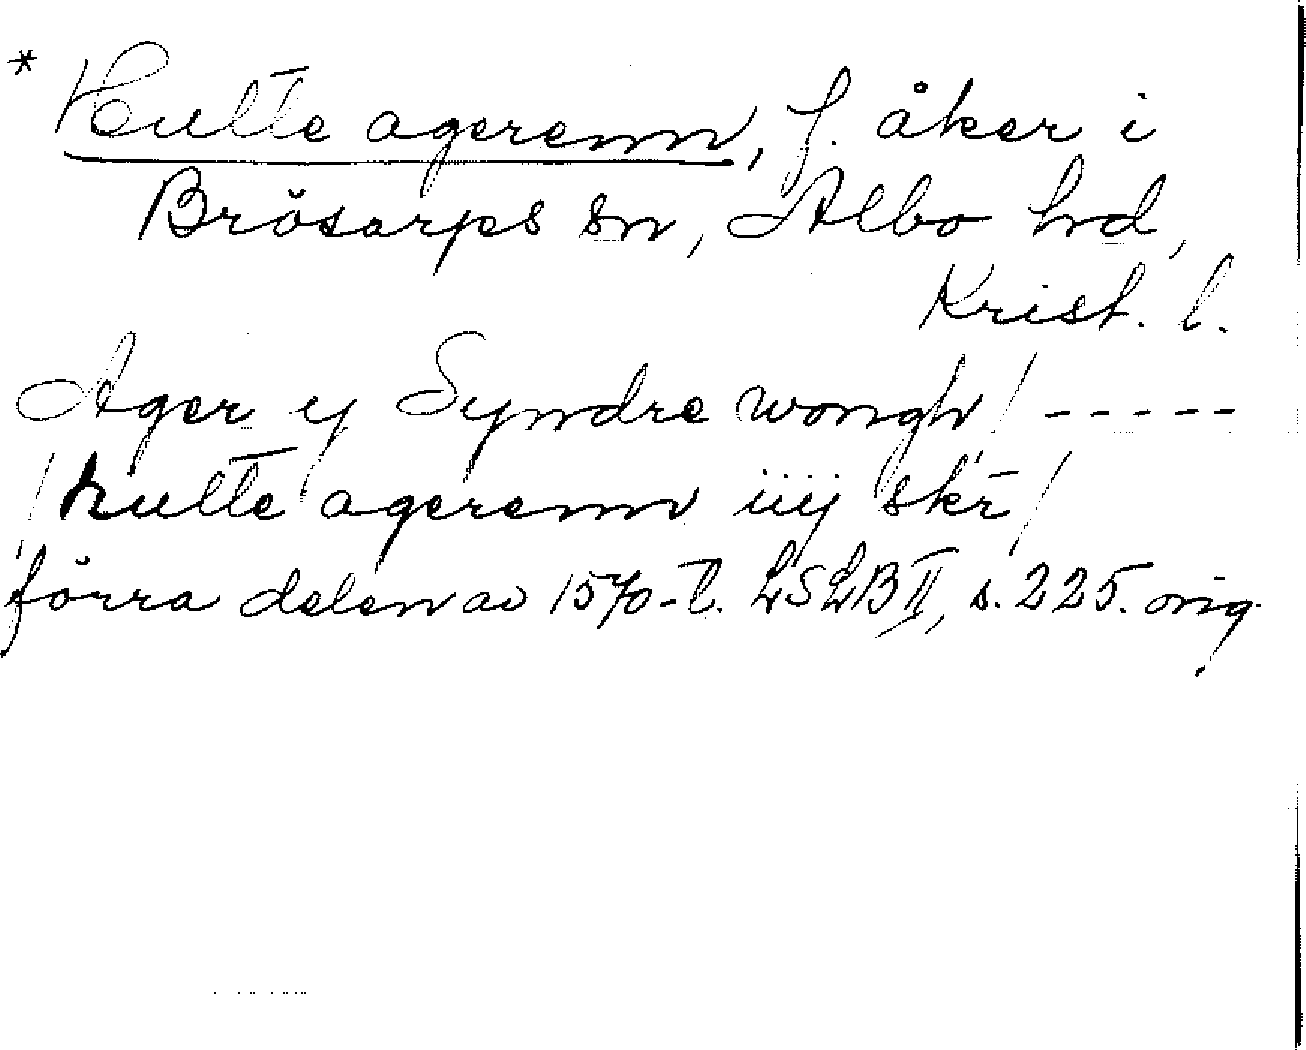 * Hulte agerenn, f. åker i
Brösarps sn, Albo hd,
Krist. l.
Ager y Syndre wongh / -----
/ hulte agerenn iiij skr̄ /
förra delen av 1570-t. LSLB II, s. 225. orig.